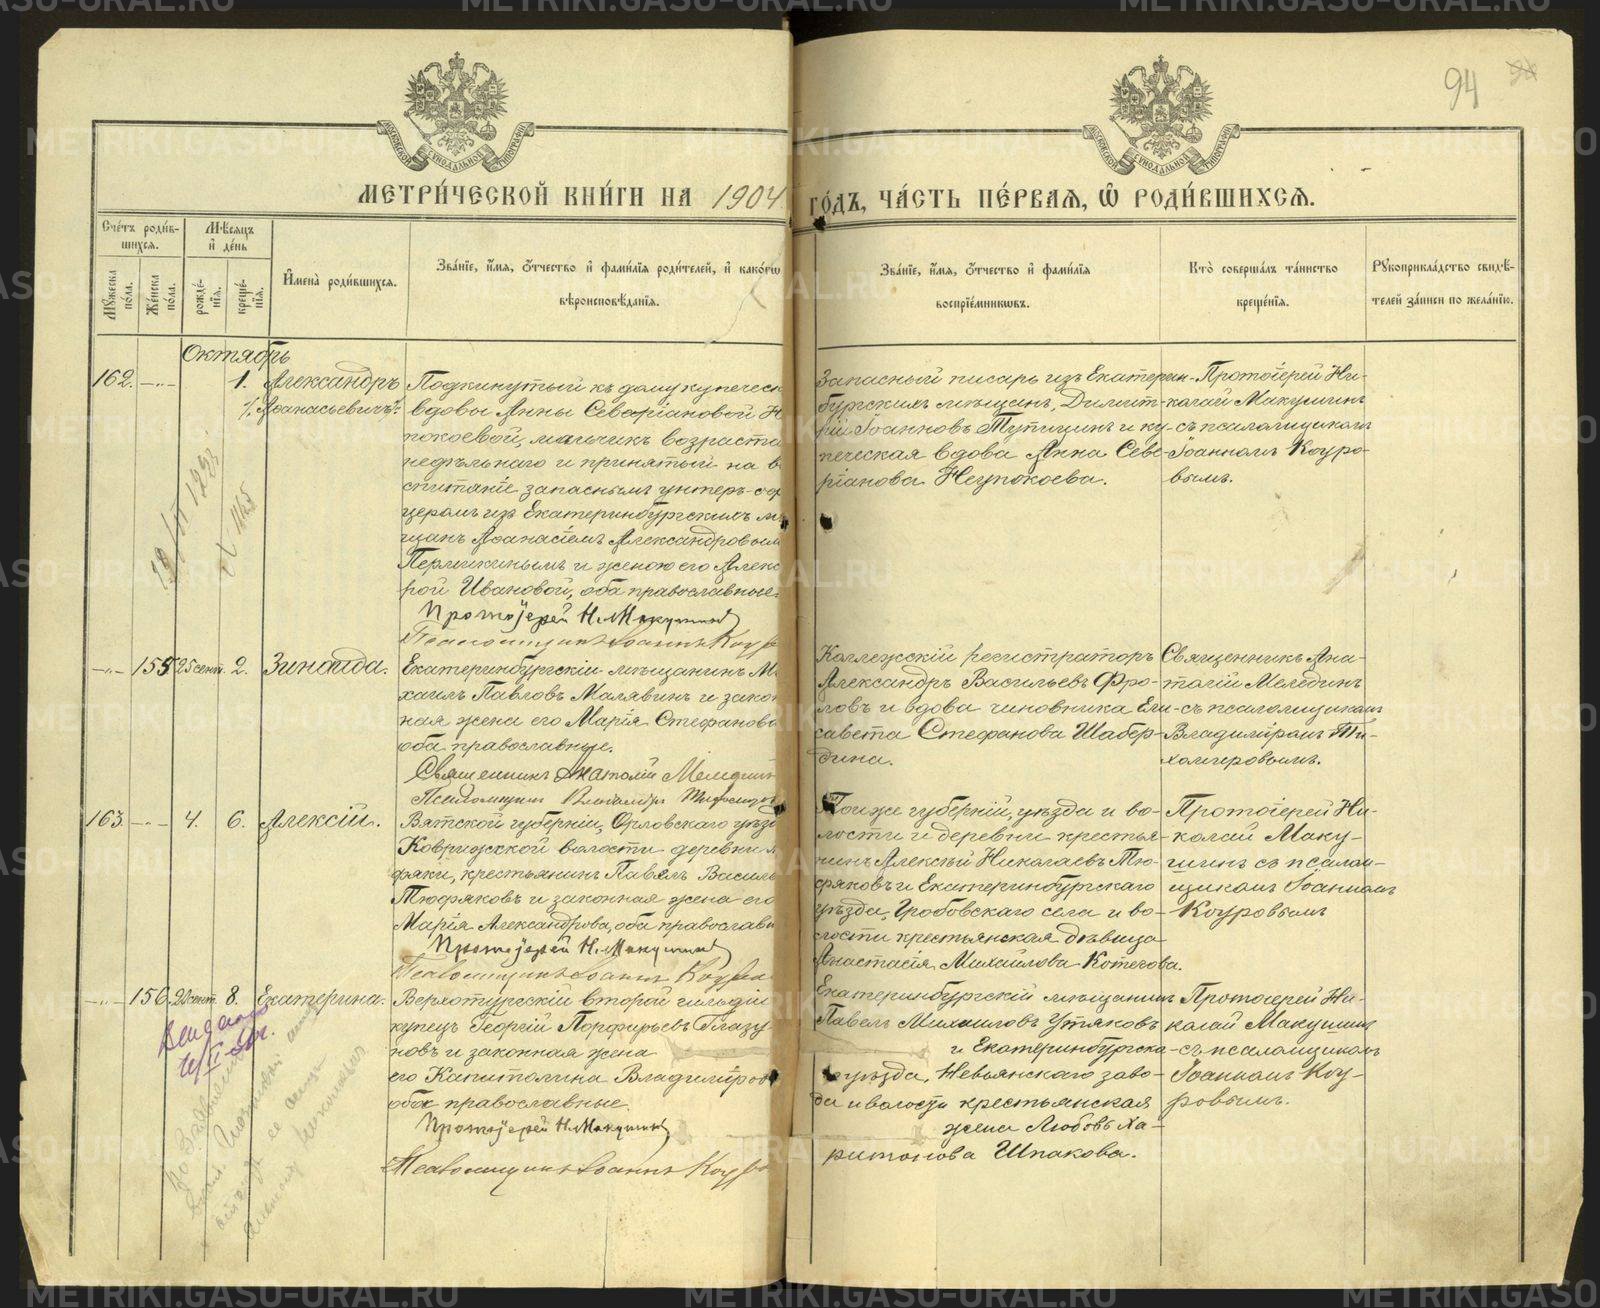 94
МОСКОВСКОЙ СѴНОДАЛЬНОЙ ТИПОГРАФІИ
МОСКОВСКОЙ СѴНОДАЛЬНОЙ ТИПОГРАФІИ
МЕТРИ́ЧЕСКОЙ КНИ́ГИ НА 1904
ГО́ДЪ, ЧА́СТЬ ПЕ́РВАѦ, Ѡ҆ РОДИ́ВШИХСѦ.
Сче́тъ роди́в-
шихсѧ.
Мꙋ́жеска по́ла.
Же́нска по́ла.
Мѣ́сѧцъ
и҆ де́нь
рожде́-
нїѧ.
креще́-
нїѧ.
И҆мена̀ роди́вшихсѧ.
Зва́нїе, и҆́мѧ, ѻ҆́тчество и҆ фами́лїѧ роди́телей, и҆ како́гѡ
вѣроисповѣ́данїѧ.
Зва́нїе, и҆́мѧ, ѻ҆́тчество и҆ фами́лїѧ
воспрїе́мникѡвъ.
Кто̀ соверша́лъ та́инство
креще́нїѧ.
Рꙋкоприкла́дство свидѣ́-
телей за́писи по жела́нїю.
Октябрь
162. —„— 1. Александръ
/Аѳанасьевичъ/.
Подкинутый къ дому купеческ
вдовы Анны Севаріановой Н
покоевой, мальчикъ возраста
недѣльнаго и принятый на в
спитаніе запаснымъ унтеръ-оф
церомъ изъ Екатеринбургскихъ м
щанъ Аѳанасіемъ Александровым
Пермикинымъ и женою его Алекс
рой Ивановой, оба православные.
Протоіерей Н. Макушинъ
Псаломщикъ Іоаннъ Коур
Запасный писарь изъ Екатерин-
бургскихъ мѣщанъ, Димит-
рій Іоанновъ Тупицинъ и ку-
печеская вдова Анна Севе-
ріанова Неупокоева.
Протоіерей Ни-
колай Макушинъ
съ псаломщикомъ
Іоанномъ Коуро-
вымъ.
—„— 155 25 сент. 2. Зинаида.
Екатеринбургскій мѣщанинъ М
хаилъ Павловъ Малявинъ и закон
ная жена его Марія Стефанова
оба православные.
Священникъ Анатолій Меледин
Псаломщикъ Владиміръ Тихомиров
Коллежскій регистраторъ
Александръ Васильевъ Фро-
ловъ и вдова чиновника Ели-
савета Стефанова Шабер-
дина.
Священникъ Ана-
толій Мелединъ
съ псаломщикомъ
Владиміромъ Ти-
хомировымъ.
163. —„— 4. 6. Алексій.
Вятской губерніи, Орловскаго уѣзд
Ковригжской волости деревни
фяки, крестьянинъ Павелъ Василь
Тюфяковъ и законная жена его
Марія Александрова, оба православн
Протоіерей Н. Макушинъ
Псаломщикъ Іоаннъ Коуров
Той же губерніи, уѣзда и во-
лости и деревни крестья-
нинъ Алексѣй Николаевъ Тю-
фяковъ и Екатеринбургскаго
уѣзда, Гробовскаго села и во-
лости крестьянская дѣвица
Анастасія Михайлова Котегова.
Протоіерей Ни-
колай Маку-
шинъ съ псалом-
щикомъ Іоанномъ
Коуровымъ
—„— 156. 22 сент. 8. Екатерина.
Верхотурскій второй гильдіи
купецъ Георгій Порфирьевъ Глазу
новъ и законная жена
его Капитолина Владиміров
оба православные.
Протоіерей Н. Макушинъ
Псаломщикъ Іоаннъ Коуро
Екатеринбургскій мѣщанинъ
Павелъ Михаиловъ Утяковъ
и Екатеринбургска-
го уѣзда, Невьянскаго заво-
да и волости крестьянская
жена Любовь Ха-
ритонова Шпакова.
Протоіерей Ни-
колай Макушинъ
съ псаломщикомъ
Іоанномъ Коу-
ровымъ.
METRIKI.GASO-URAL.RU